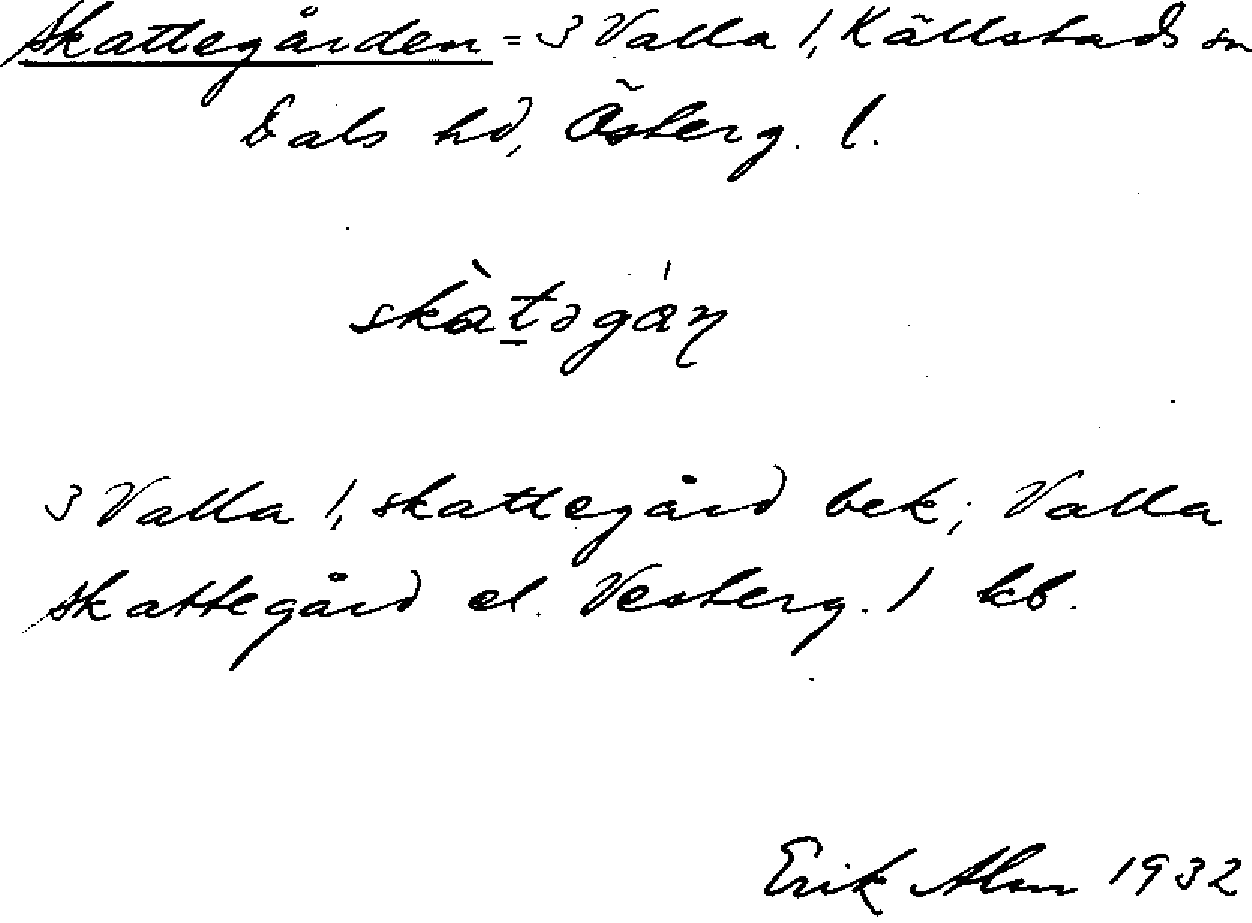 Skattegården = 3 Valla 1, Källstads sn
Dals hd, Österg. l.
skàt̠əgán
3 Valla 1, skattegård bek; Valla
skattegård el. Vesterg. 1 kb.
Erik Alm 1932